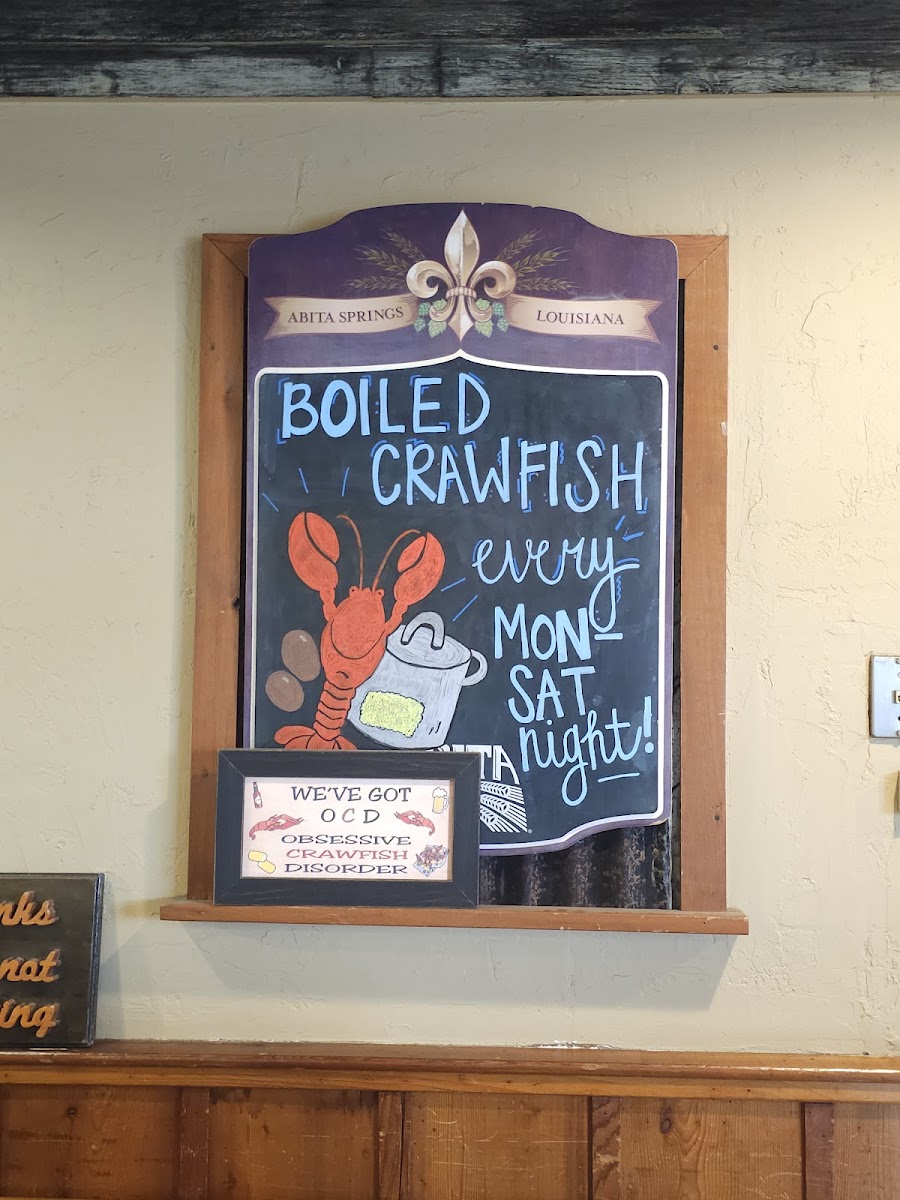 ABITA SPRINGS LOUISIANA
BOILED
CRAWFISH
every
MON-
SAT
night!
WE'VE GOT
OCD
OBSESSIVE
CRAWFISH
DISORDER
not